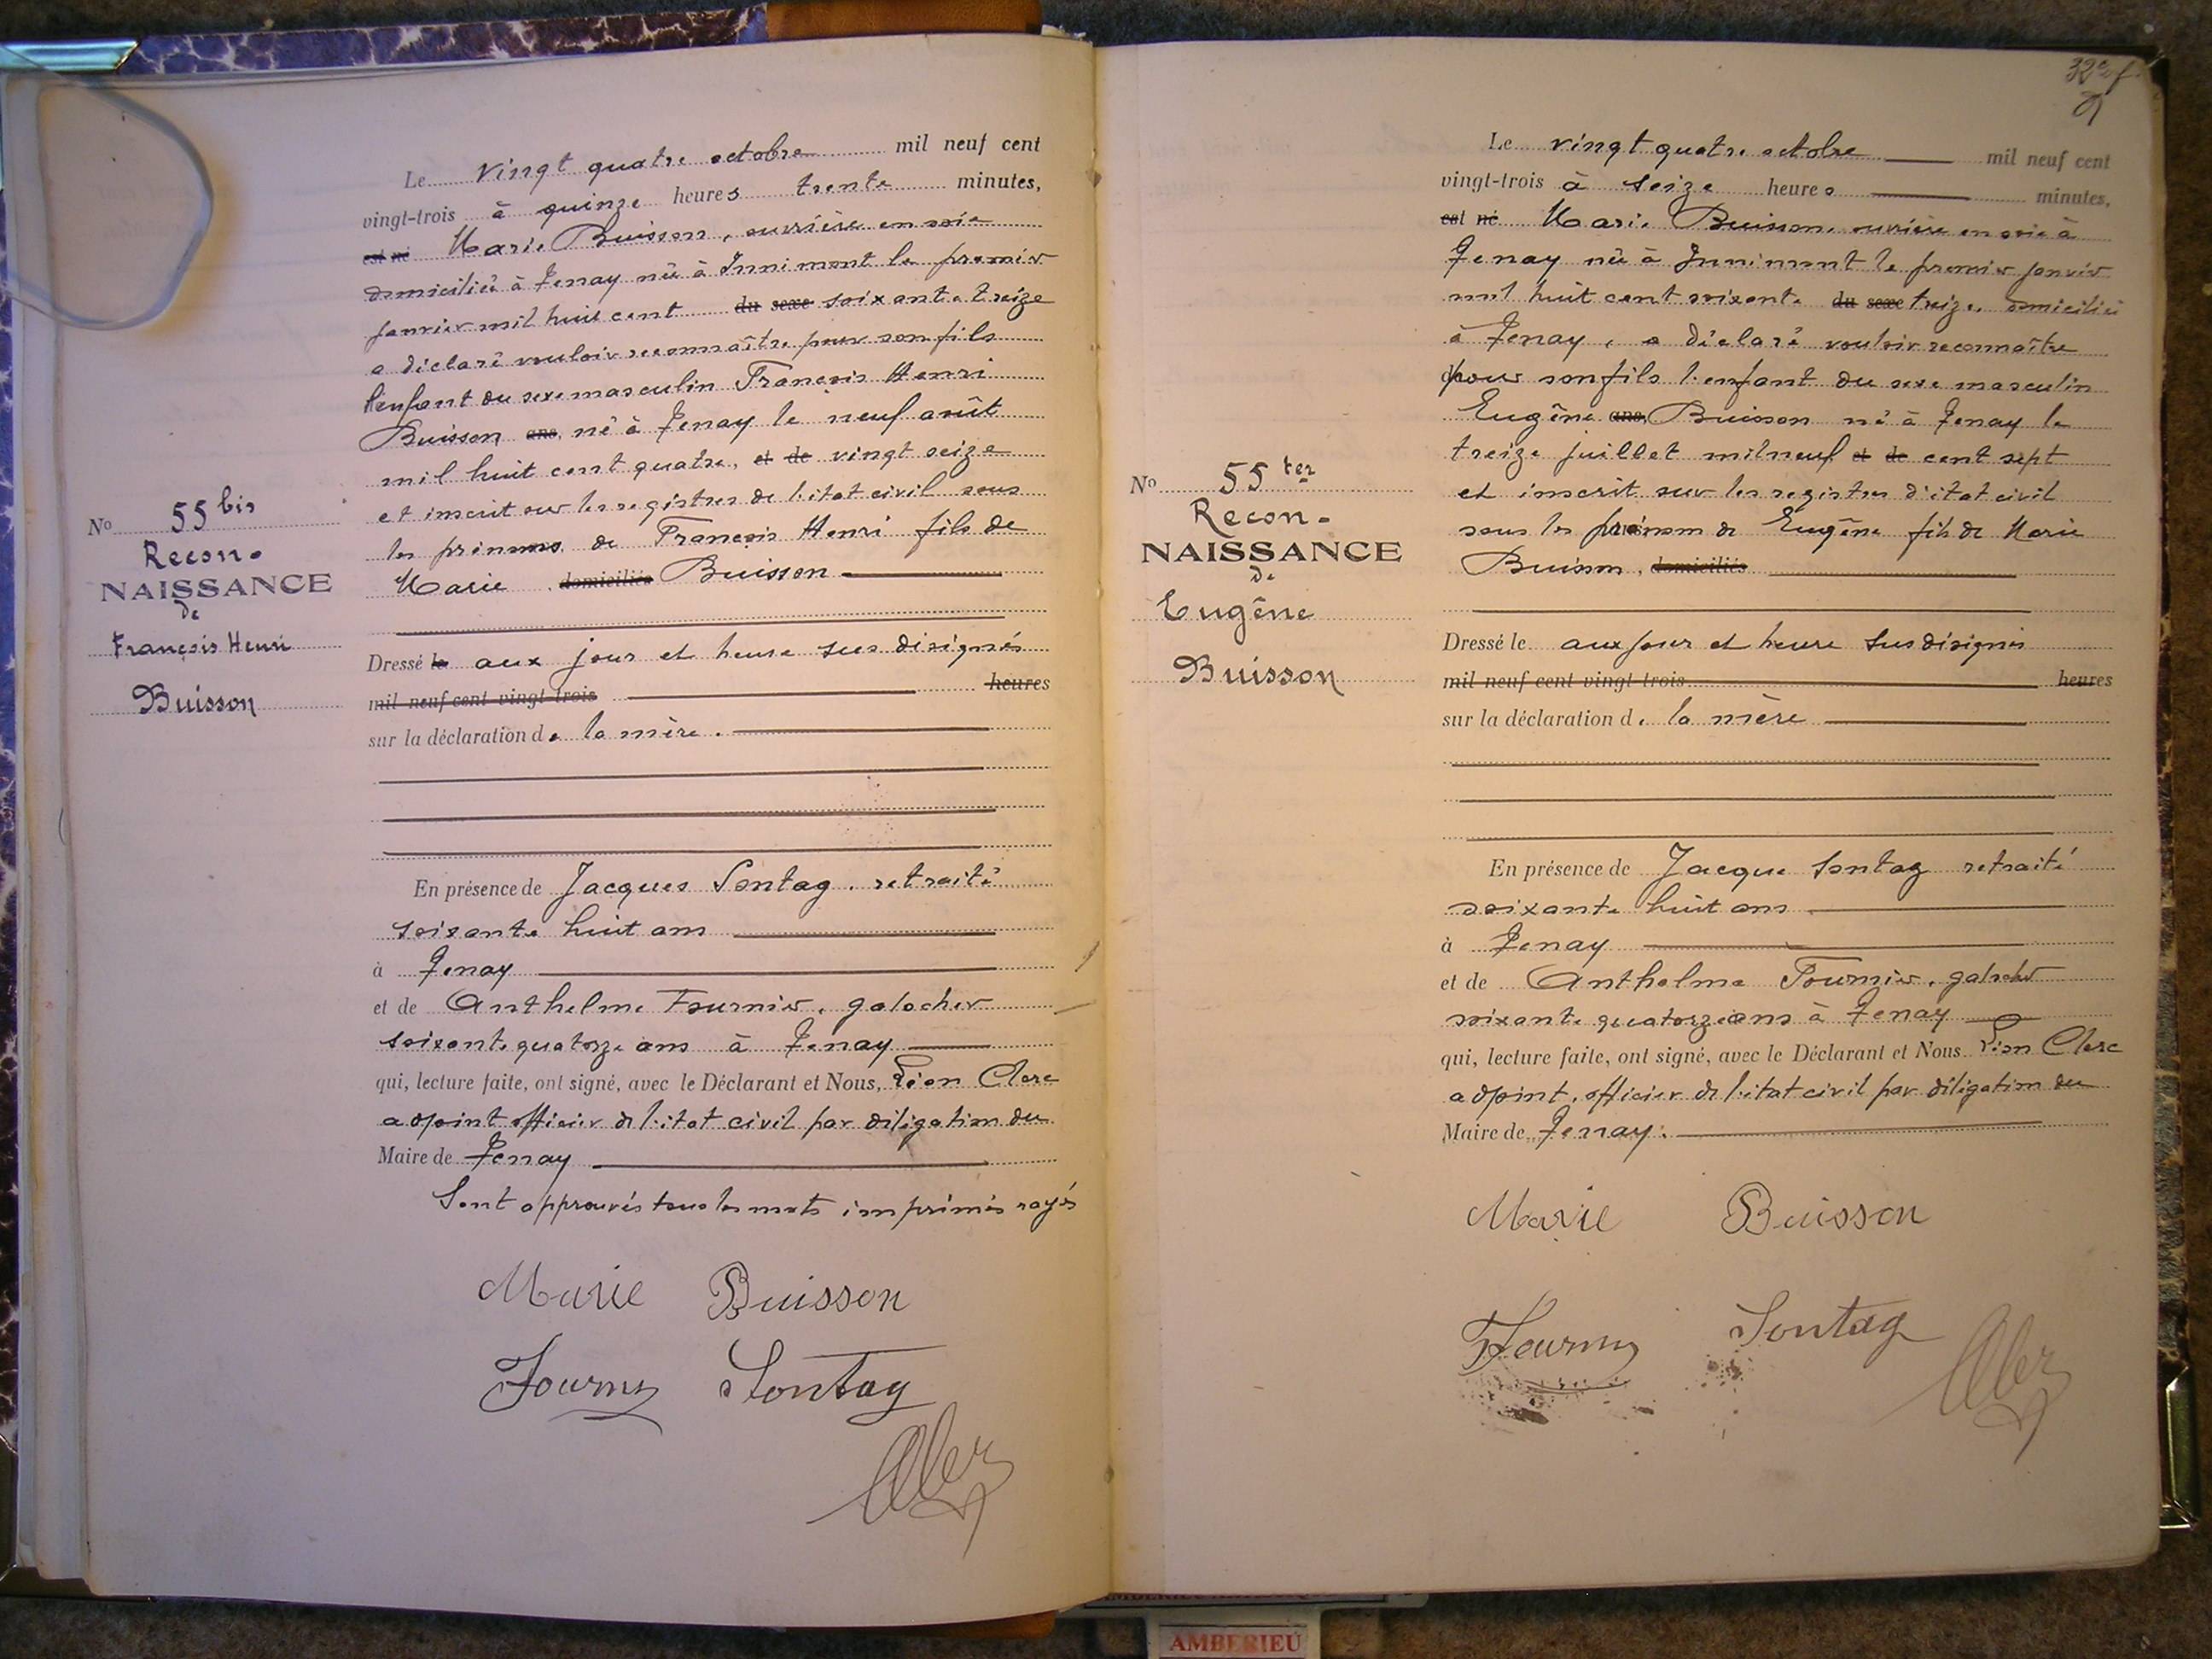 Le vingt quatre octobre mil neuf cent
vingt-trois à quinze heures trente minutes,
est né Marie Buisson, ouvrière en soie
domiciliée à Tenay née à Innimont le premier
janvier mil huit cent du sexe soixante treize
a déclaré vouloir reconnaître pour son fils
l'enfant du sexe masculin François Henri
Buisson ans, né à Tenay le neuf août
mil huit cent quatre, et de vingt seize
et inscrit sur les registres de l'état civil sous
les prénoms de François Henri fils de
Marie, domiciliés Buisson
Nº 55 bis
Recon-
NAISSANCE
de
François Henri
Buisson
Dressé le aux jour et heure sus désignés
mil neuf cent vingt trois heures
sur la déclaration de la mère.
En présence de Jacques Sontag, retraité
soixante huit ans
à Tenay
et de Anthelme Fournier, galocher
soixante quatorze ans à Tenay
qui, lecture faite, ont signé, avec le Déclarant et Nous, Léon Clerc
adjoint officier de l'état civil par délégation du
Maire de Tenay
Sont approuvés tous les mots imprimés rayés
Marie Buisson
Fourny Sontag
32e f
Le vingt quatre octobre mil neuf cent
vingt-trois à seize heures minutes,
est né Marie Buisson, ouvrière en soie à
Tenay née à Innimont le premier janvier
mil huit cent soixante du sexe treize, domiciliée
à Tenay, a déclaré vouloir reconnaître
pour son fils l'enfant du sexe masculin
Eugène ans, Buisson né à Tenay le
treize juillet mil neuf et de cent sept
et inscrit sur les registres d'état civil
sous les prénom de Eugène fils de Marie
Buisson, domiciliés
Nº 55 ter
Recon-
NAISSANCE
de
Eugène
Buisson
Dressé le aux jour et heure sus désignés
mil neuf cent vingt trois heures
sur la déclaration de la mère
En présence de Jacque Sontag retraité
soixante huit ans
à Tenay
et de Anthelme Fournier, galocher
soixante quatorze ans à Tenay
qui, lecture faite, ont signé, avec le Déclarant et Nous Léon Clerc
adjoint, officier de l'état civil par délégation du
Maire de Tenay.
Marie Buisson
Fourny Sontag
AMBERIEU